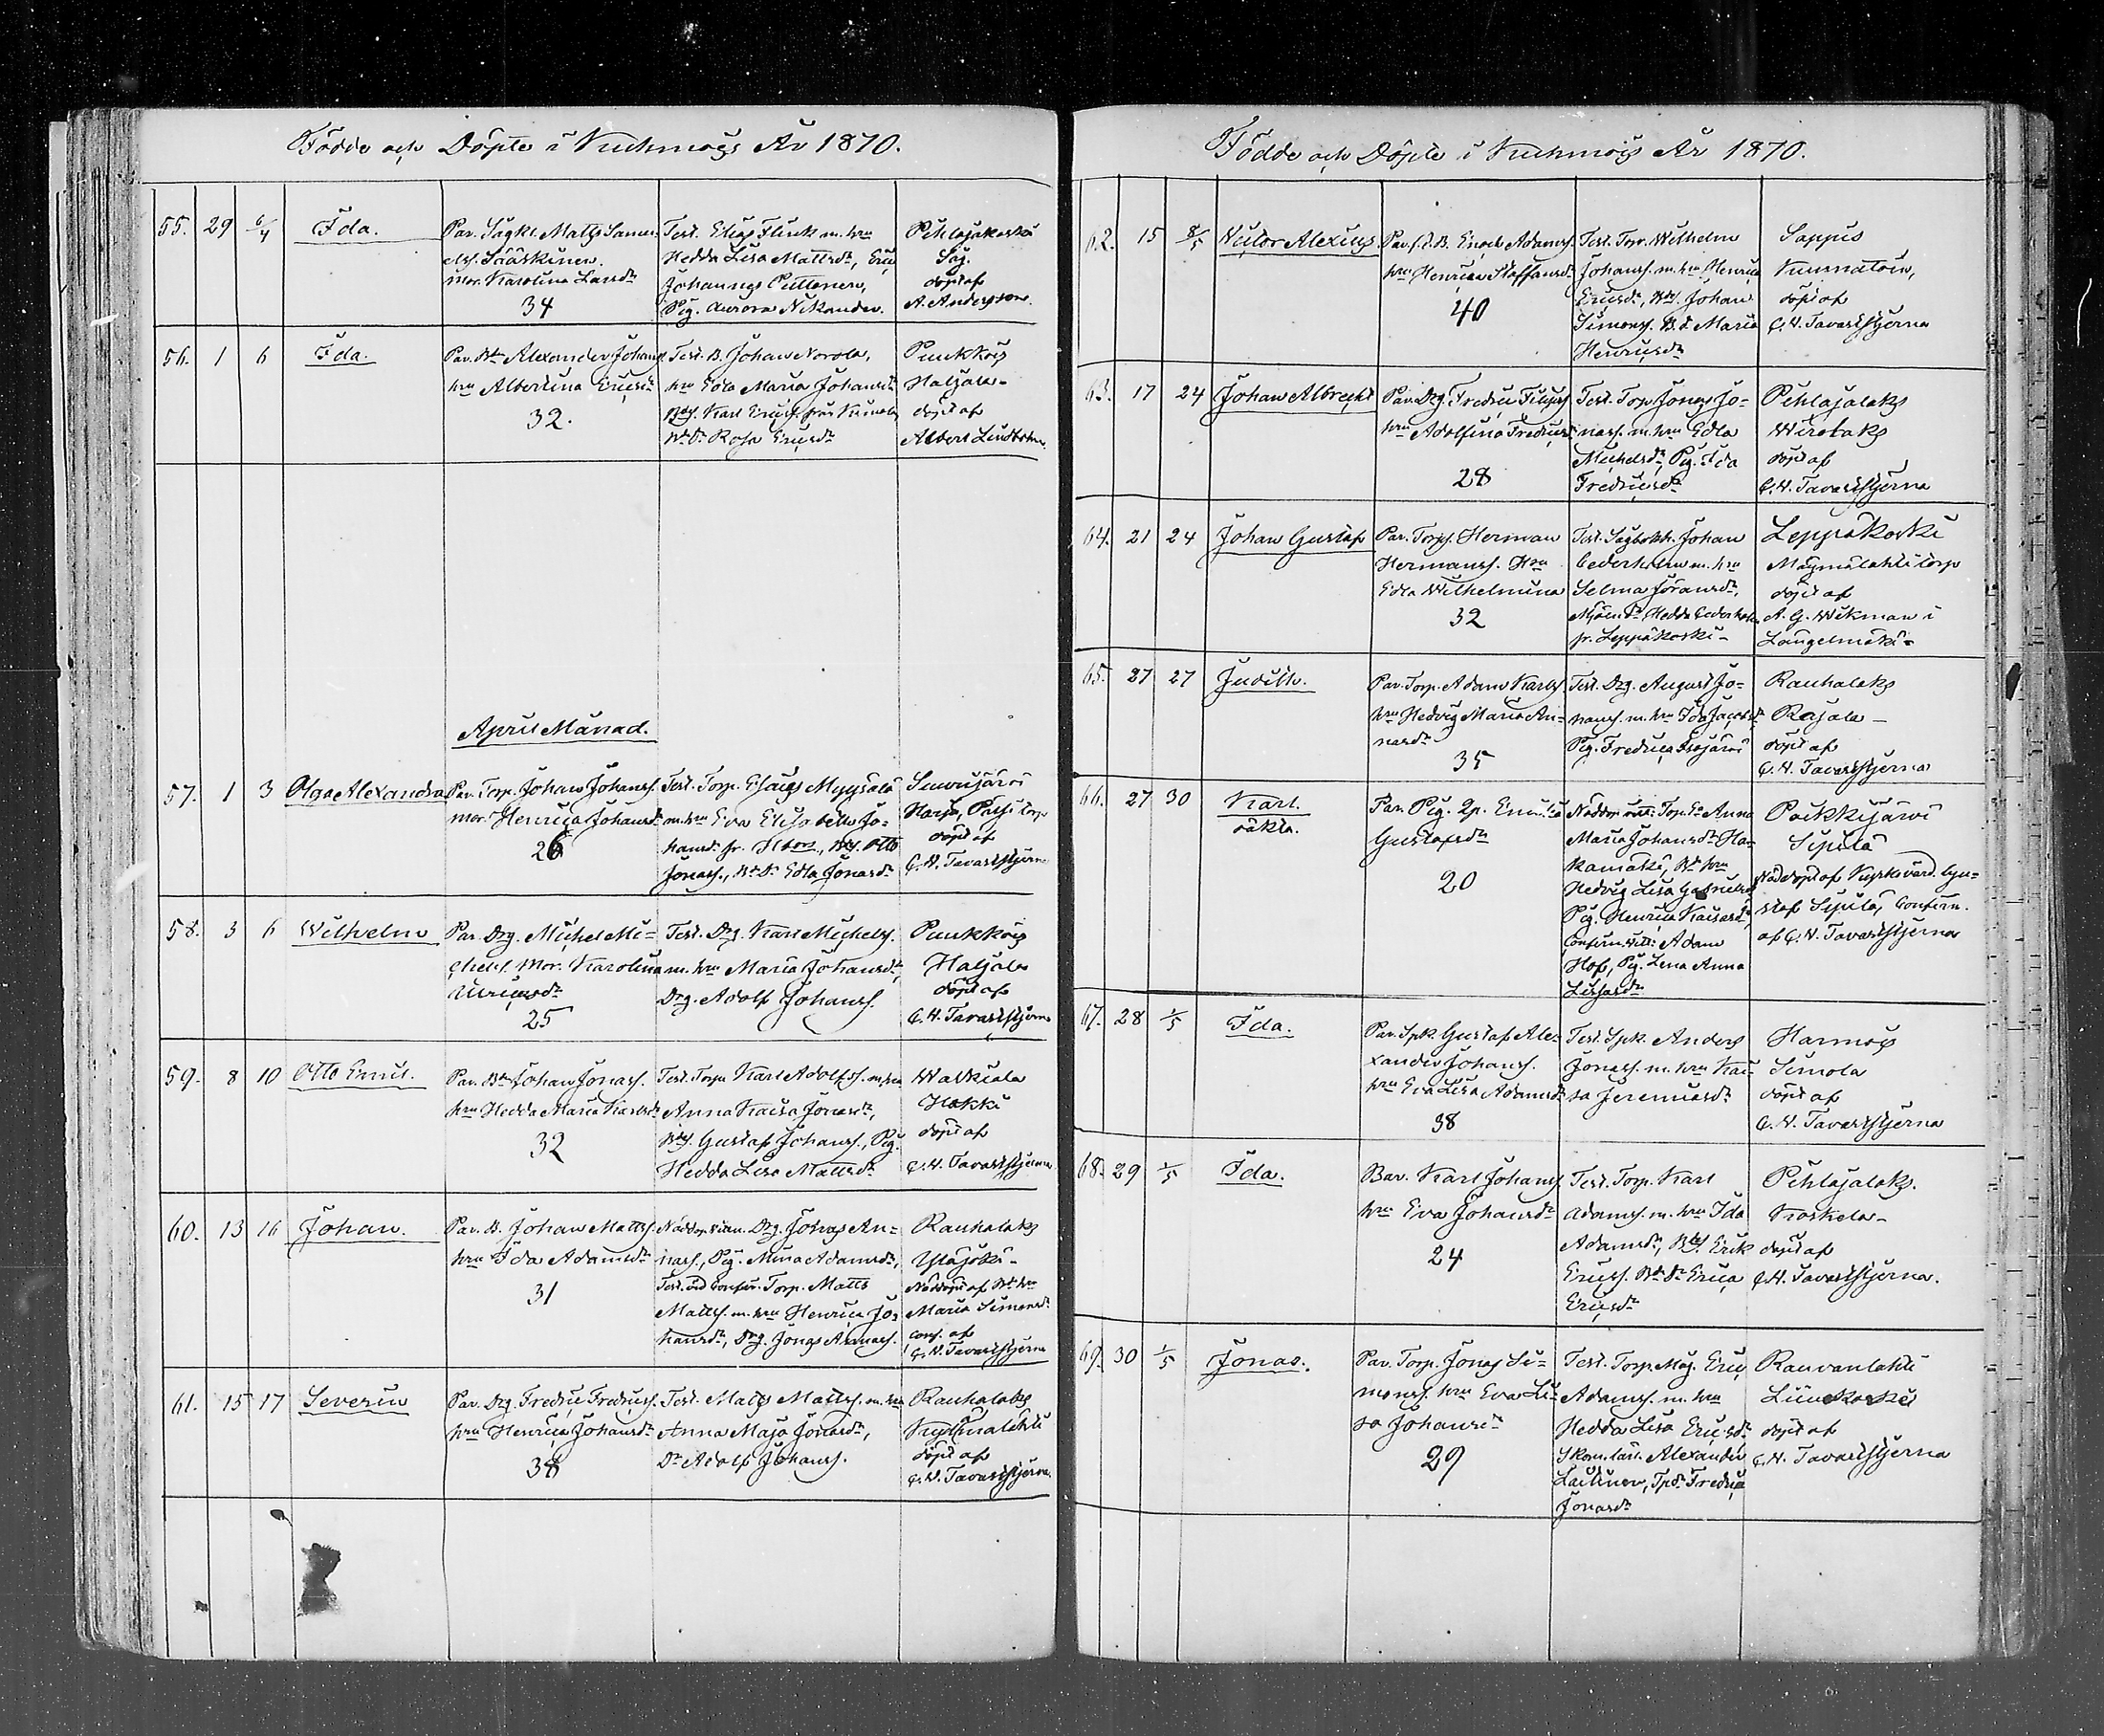 Födde och Döpte i Kuhmois År 1870.
55. 29 6/4 Ida.
Par. Sågkl. Matts Samu-
elss. Sääskinen.
mor. Karolina Larsdr
34
Test. Elias Flink m. hru
Hedda Lisa Mattsdr, Eric
Johannes Puttonen,
Pig. Aurora Nikander.
Pihlajakoski
Såg.
döpt af
A. Andersson.
56. 1 6 Ida.
Par. Bdn Alexander Johans.
hru Albertina Ericsdr
32.
Test. B. Johan Norola,
hru Edla Maria Johansdr
Bds. Karl Erics.
Bd. Dr Rosa Ericsdr
Puukkois
Haljala-
döpt af
Albert Lindholm.
April Månad.
57. 1 3 Olga Alexandra
Par. Torp. Johan Johanss.
mor. Henrica Johansdr
26
Test. Torp. Esaias Myysälä
m. hru Eva Elisabetha Jo-
hansdr fr. Bds. Otto
Jonass., Bd. Dr Edla Jonasdr
Harju, Torp
döpt af
C. H. Tavaststjerna
58. 3 6 Wilhelm
Par. Drg. Michel Mi-
chels. Mor. Karolina
Ulricsdr
25
Test. Drg. Karl Michels.
m. hru Maria Johansdr,
Drg. Adolf Johanss.
Puukkois
Haljala
döpt af
C. H. Tavaststjerna
59. 8 10 Otto Emil.
Par. Bdn Johan Jonass.
hru Hedda Maria Karlsdr
32
Test. Torp. Karl Adolfss. m. hru
Anna Kaisa Jonasdr,
Bds. Gustaf Johanss., Pig.
Hedda Lisa Mattsdr
Walkiala
Hakki
döpt af
C. H. Tavaststjerna
60. 13 16 Johan.
Par. B. Johan Mattss.
hru Ida Adamsdr
31
Nöddop. vittn. Drg. Johans An-
nass., Pig. Mina Adamsdr,
Test. vid Confir. Torp. Matts
Mattss. m. hru Henrica Jo-
hansdr, Drg. Jonas Annass.
Rauhalaks
Yläjoki-
Nöddöpt af Bd. hru
Maria Simonsdr
conf. af
C. H. Tavaststjerna
61. 15 17 Severin
Par. Drg Fredric Fredrics.
hru Henrica Johansdr
38
Test. Matts Mattss. m. hru
Anna Maja Jonasdr,
Dr Adolf Johanss.
Rauhalaks
döpt af
C. H. Tavaststjerna
Födde och Döpte i Kuhmois År 1870.
62. 15 8/5 Victor Alexius
Par. B. Enoch Adamss.
hru Henrica Staffansdr
40
Test. Torp. Wilhelm
Johanss. m. hru Henrica
Ericsdr, Bds. Johan
Simonss. B. d. Maria
Henricsdr
Sappis
döpt af
C. H. Tavaststjerna
63. 17 24 Johan Albrecht
Par. Drg. Fredric Filips.
hru Adolfina Fredricsdr
28
Test. Torp. Jonas Jo-
nass. m. hru Edla
Michelsdr, Pig. Ida
Fredricsdr
Pihlajalaks
Wirolaks
döpt af
C. H. Tavaststjerna
64. 21 24 Johan Gustaf
Par. Torp. Herman
Hermanss. Hru
Edla Wilhelmina
32
Test. Sågbokh. Johan
Cederholm m. hru
Selma Göransdr,
Mjöln. Dr Hedda Cederholm
fr. Leppäkoski-
Leppäkoski
torp
döpt af
A. G. Wikman i
Längelmäki-
65. 27 27 Judith.
Par. Torp. Adam Karls.
hru Hedvig Maria An-
nasdr
35
Test. Drg. August Jo-
hanss. m. hru Ida Jacobsdr
Pig. Fredrica Isojärvi
Rauhalaks
Rajala-
döpt af
C. H. Tavaststjerna
66. 27 30 Karl.
oäkta.
Par. Pig. Qp. Emilia
Gustafsdr
20
Nöddop vitt. Torp. En. Anna
Maria Johansdr Ha-
kamäki, Bd. hru
Hedvig Lisa Gabrielsdr
Pig. Henrica Kaisasdr,
Confirm. vitt: Adam
Hof, Pig. Lena Anna
Lisasdr
Poikkijärvi
Sipilä
Nöddöpt af Kyrkovärd. Gu-
staf Sipilä, Confirm.
af C. H. Tavaststjerna
67. 28 1/5 Ida.
Par. Spk. Gustaf Ale-
xander Johanss.
hru Eva Lisa Adamsdr
38
Test. Spk. Anders
Jonass. m. hru Kai-
sa Jeremiasdr
Harmois
Simola
döpt af
C. H. Tavaststjerna
68. 29 1/5 Ida.
Bar. Karl Johanss.
hru Eva Johansdr
24
Test. Torp. Karl
Adamss. m. hru Ida
Adamsdr, Bds. Erik
Ericss. Bd. Dr Erica
Ericsdr
Pihlajalaks.
Koskela-
döpt af
C. H. Tavaststjerna.
69. 30 1/5 Jonas.
Par. Torp. Jonas Si-
monss. hru Eva Li-
sa Johansdr
29
Test. Torp. Måg. Eric
Adamss. m. hru
Hedda Lisa Ericsdr
Skom. lärl. Alexander
Laitinen, Tpdr Fredrica
Jonasdr
Rauvanlahti
Liinekoski
döpt af
C. H. Tavaststjerna